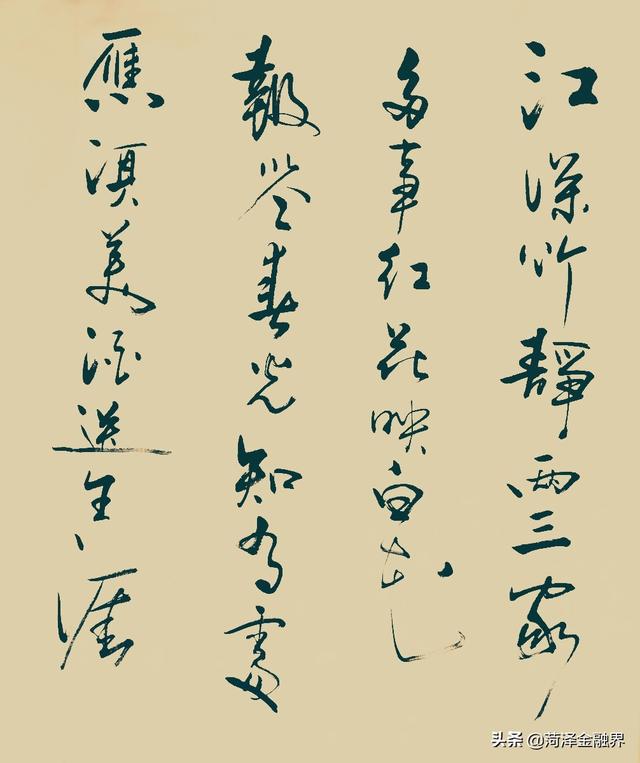 江深竹靜兩三家
多事紅花映白花
報答春光知有處
應須美酒送生涯
头条 @菏泽金融界